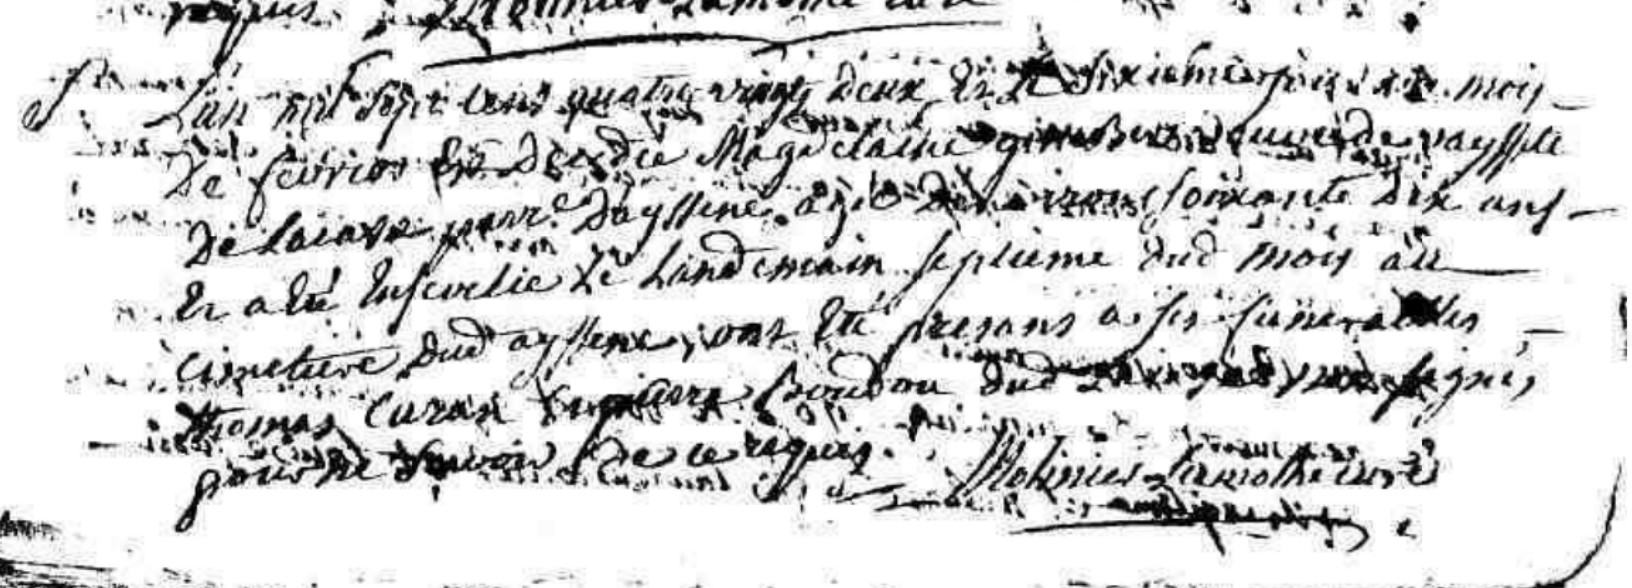 requis. Molinier Lamothe curé
L'an mil sept cens quatre vingt deux et le sixieme jour du mois
de fevrier est decedée Magdelaine veuve de
de parr.e d'ayssene agée d'environ soixante dix ans
et a été ensevelie le landemain septieme dud mois au
cimetiere dud ayssene, ont été presans a ses funerailles
thomas curan et pierre Boudou dud non signés
pour ne savoir de ce requis. Molinier Lamothe curé